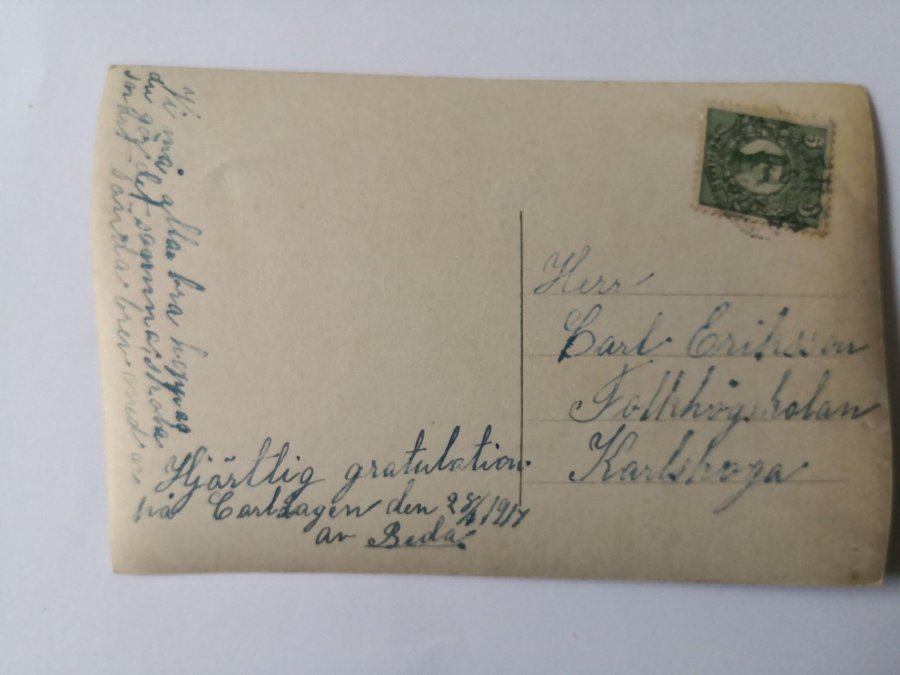 Vi må alla bra hoppas
du gör det samma skola
snart sända brev med
Hjärtlig gratulation
på Carldagen den 28/1 1917
av Beda.
Herr
Carl Eriksson
Folkhögskolan
Karlskoga